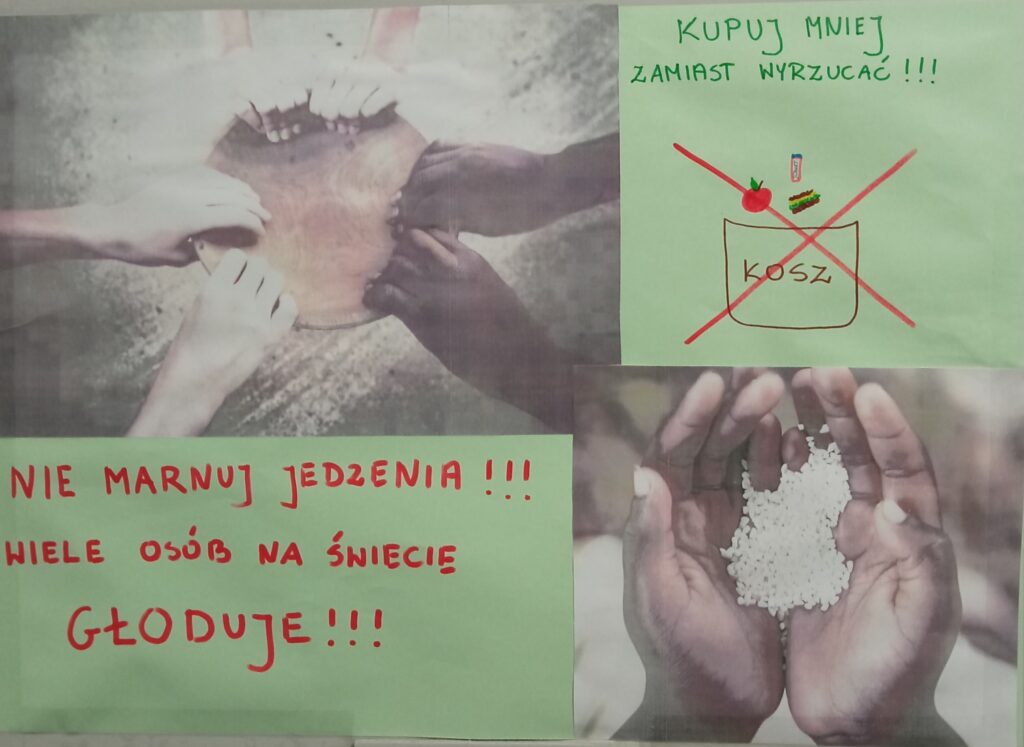 KUPUJ MNIEJ
ZAMIAST WYRZUCAĆ!!!
KOSZ
NIE MARNUJ JEDZENIA!!!
WIELE OSÓB NA ŚWIECIĘ
GŁODUJE!!!